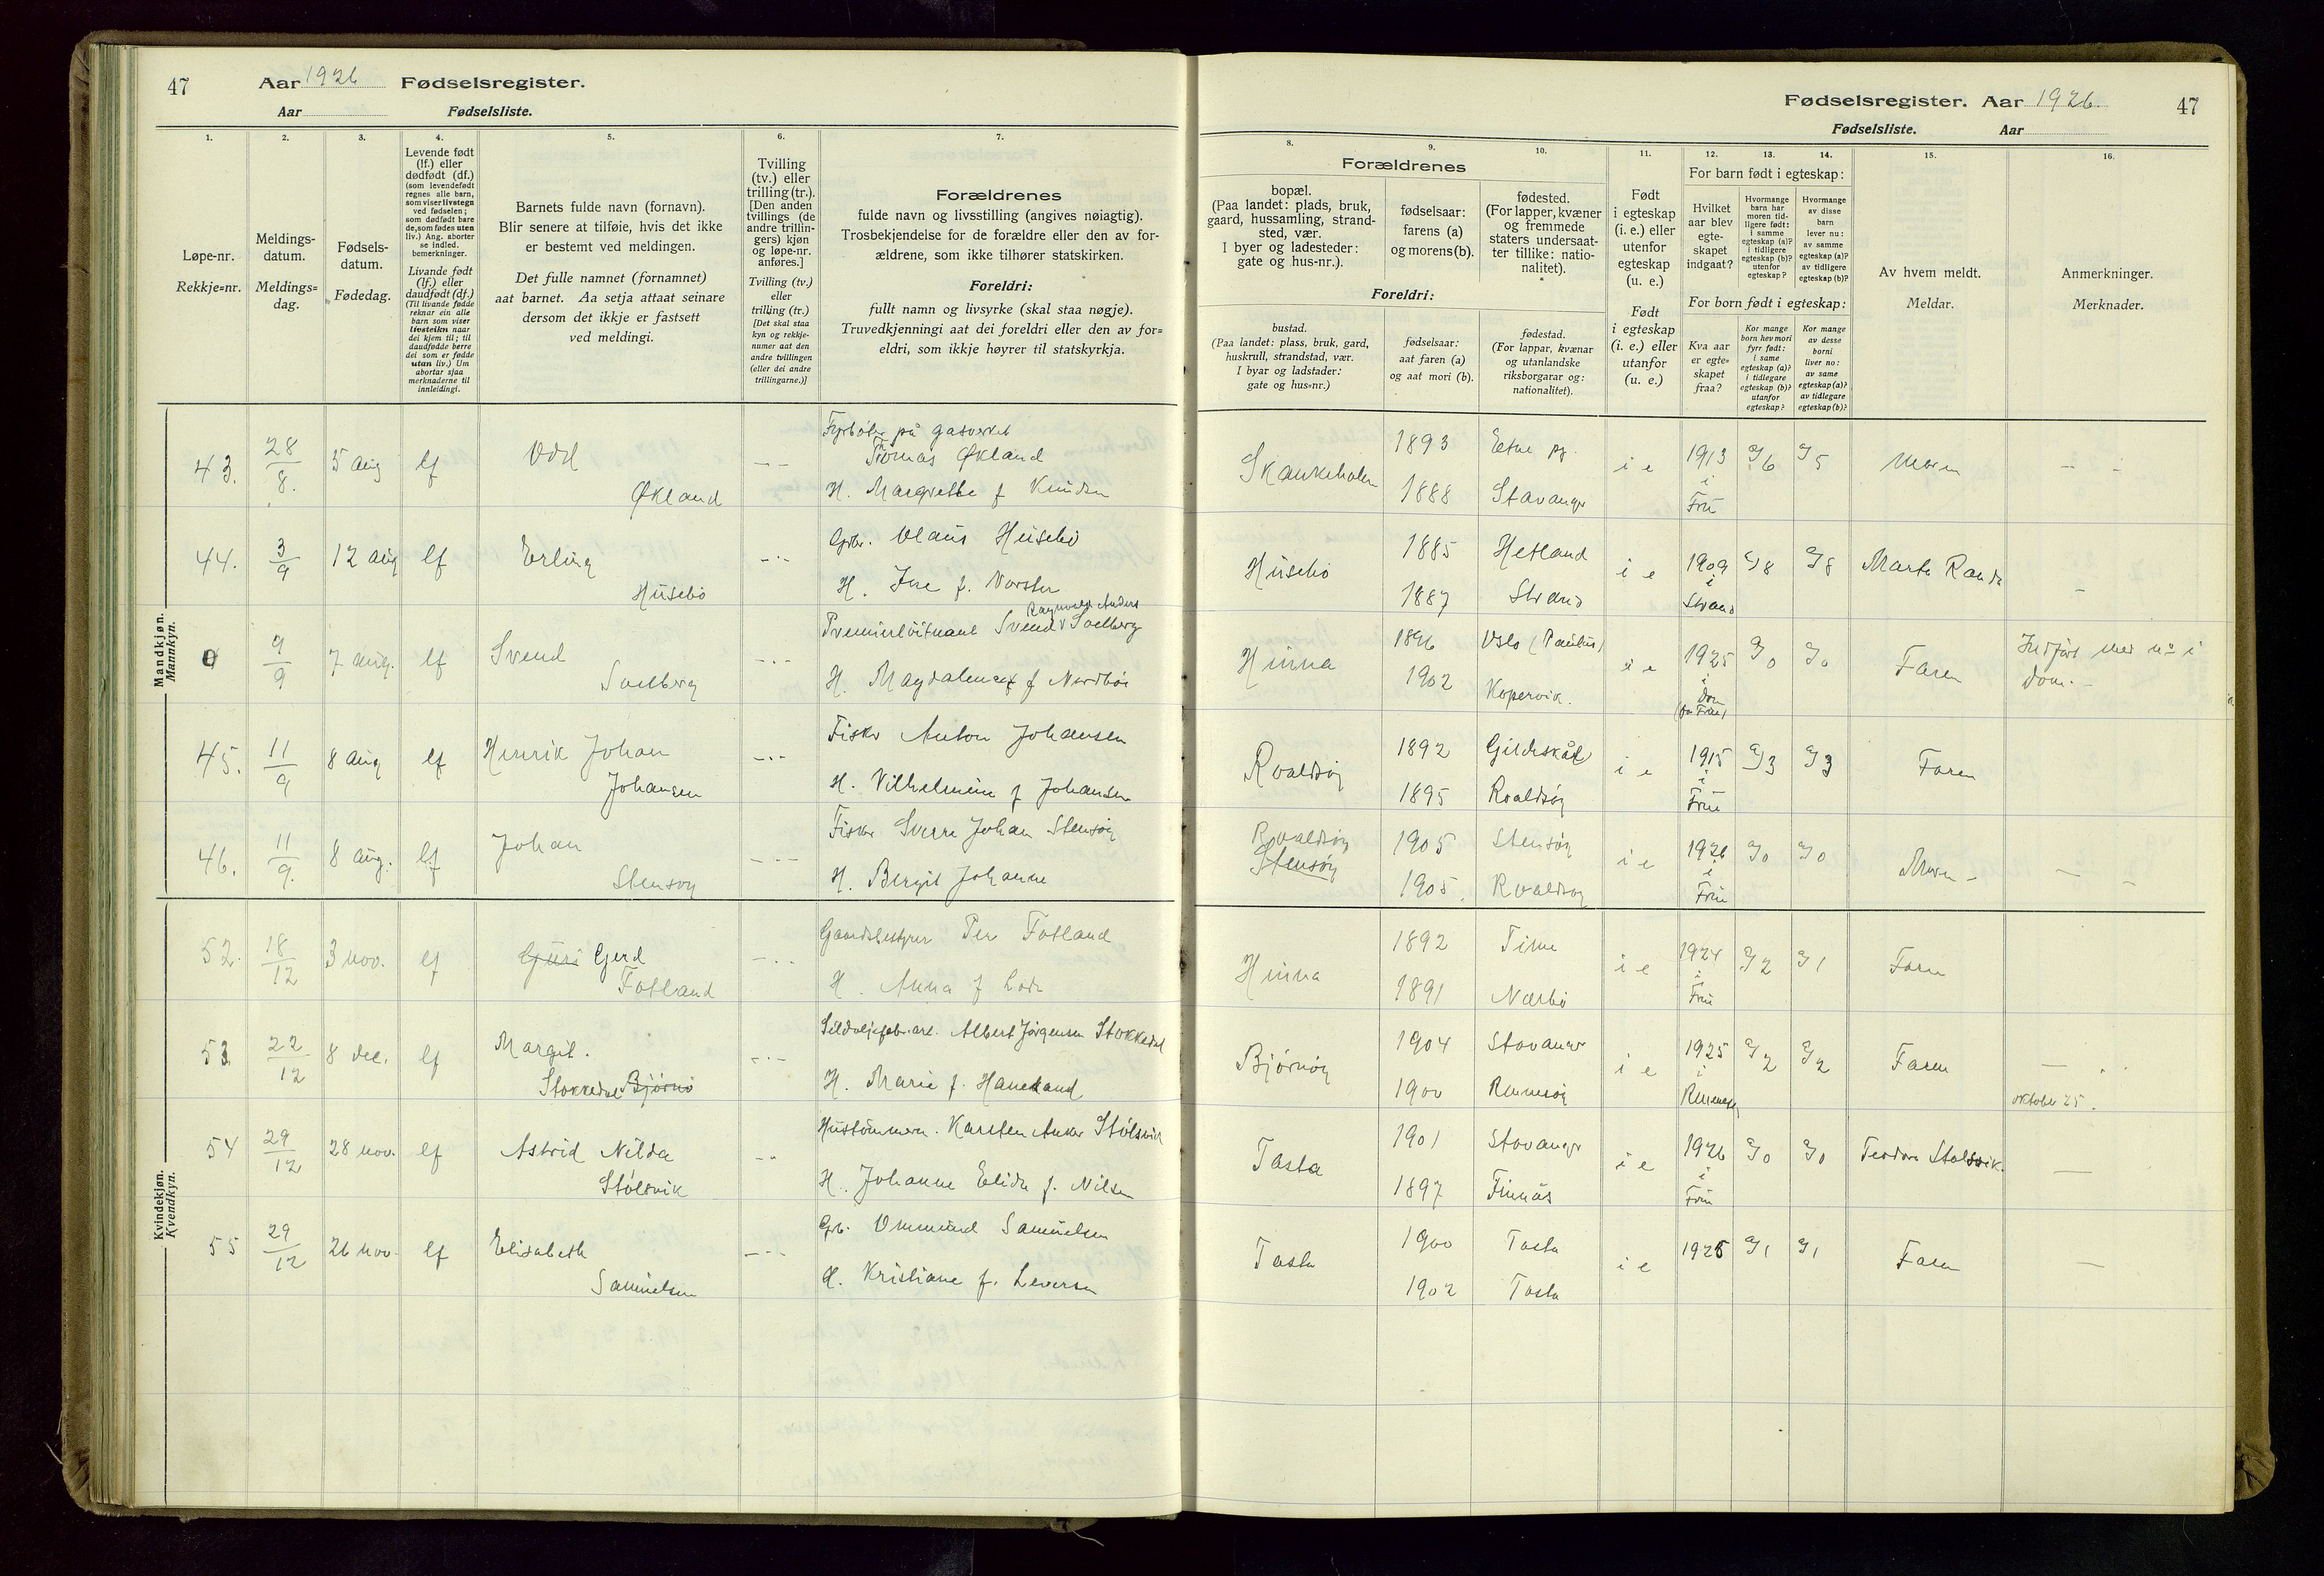 47
Aar 1926 Fødselsregister.
Aar Fødselsliste.
1.
2.
3.
4.
5.
6.
7.
Løpe-nr.
Rekkje=nr.
Meldings-
datum.
Meldings=
dag.
Fødsels-
datum.
Fødedag.
Levende født
(lf.) eller
dødfødt (df.)
(som levendefødt
regnes alle barn,
som viser livstegn
ved fødselen;
som dødfødt bare
de, som fødes uten
liv.) Ang. aborter
se indled.
bemerkninger.
Livande født
(lf.) eller
daudfødt (df.)
(Til livande fødde
reknar ein alle
barn som viser
livsteikn naar
dei kjem til; til
daudfødde berre
dei som er fødde
utan liv.) Um
abortar sjaa
merknaderne til
innleidingi.
Barnets fulde navn (fornavn).
Blir senere at tilføie, hvis det ikke
er bestemt ved meldingen.
Det fulle namnet (fornamnet)
aat barnet. Aa setja attaat seinare
dersom det ikkje er fastsett
ved meldingi.
Tvilling
(tv.) eller
trilling (tr.).
[Den anden
tvillings (de
andre trillin-
gers) kjøn
og løpe-nr.
anføres.]
Tvilling (tv.)
eller
trilling (tr.)
[Det skal staa
kyn og rekkje-
numer aat den
andre tvillingen
(eller dei andre
trillingarne.)]
Forældrenes
fulde navn og livsstilling (angives nøiagtig).
Trosbekjendelse for de forældre eller den av for-
ældrene, som ikke tilhører statskirken.
Foreldri:
fullt namn og livsyrke (skal staa nøgje).
Truvedkjenningi aat dei foreldri eller den av for=
eldri, som ikkje høyrer til statskyrkja.
Mandkjøn.
Mannkyn.
43. 28/8. 5 aug lf Odd Økland
Fyrbøter på gasverket
Tomas Økland
H. Margrethe f Knudsen
44. 3/9 12 aug lf Erling Husebø
Grbr. Olaus Husebø
H. Ine f.
0 9/9 7 aug. lf Svend Soelberg
Ragnvald Anders
Premierløitnant Svend Soelberg
H. Magdalene f Nordbøe
45. 11/9 8 aug lf Henrik Johan Johansen
Fisker Anton Johansen
H. Vilhelmine f Johansen
46. 11/9. 8 aug. lf Johan Stensøy
Fisker Sverre Johan Stensøy
H. Bergit Johanne
Kvindekjøn.
Kvendkyn.
52. 18/12 3 nov. lf Guri Gerd Fotland
Gaardsbestyrer Per Fotland
H. Anna f
53 22/12 8 dec. lf Margit. Stokkedal Bjørnø
Sildoljefabr.arb. Albert Jørgensen Stokkedal
H. Marie f. Haneland
54 29/12 28 nov. lf Astrid Nilda Stølsvik
Hustømmerm. Karsten Anker Stølsvik
H. Johanne Elida f. Nilsen
55 29/12 26 nov. lf Elisabeth Samuelsen
Grb. Ommund Samuelsen
H. Kristiane f. Leversen
Fødselsregister. Aar 1926.
47
Fødselsliste. Aar
8.
9.
10.
11.
12.
13.
14.
15.
16.
Forældrenes
bopæl.
(Paa landet: plads, bruk,
gaard, hussamling, strand-
sted, vær.
I byer og ladesteder:
gate og hus-nr.).
fødselsaar:
farens (a)
og morens (b).
fødested.
(For lapper, kvæner
og fremmede
staters undersaat-
ter tillike: natio-
nalitet).
Foreldri:
bustad.
(Paa landet: plass, bruk, gard,
huskrull, strandstad, vær.
I byar og ladstader:
gate og hus=nr.)
fødselsaar:
aat faren (a)
og aat mori (b).
fødestad.
(For lappar, kvænar
og utanlandske
riksborgarar og:
nationalitet).
Født
i egteskap
(i. e.) eller
utenfor
egteskap
(u. e.)
Født
i egteskap
(i. e.) eller
utanfor
(u. e.)
For barn født i egteskap:
Hvilket
aar blev
egte-
skapet
indgaat?
Hvormange
barn har
moren tid-
ligere født:
i samme
egteskap (a)?
i tidligere
egteskap (b)?
utenfor
egteskap?
Hvormange
av disse
barn
lever nu:
av samme
egteskap (a)?
av tidligere
egteskap (b)?
For born født i egteskap:
Kva aar
er egte=
skapet
fraa?
Kor mange
born hev mori
fyrr født:
i same
egteskap (a)?
i tidlegare
egteskap (b)?
utanfor
egteskap?
Kor mange
av desse
borni
liver no:
av same
egteskap (a)?
av tidlegare
egteskap (b)?
Av hvem meldt.
Meldar.
Anmerkninger.
Merknader.
Skankeholm 1893 Eetne pg. i e 1913 6 5 Moren
1888 Stavanger i Frue
Husebø 1885 Hetland i e 1909 8 8 Marta Rande
1887 Strand i Strand
Hinna 1896 Oslo (Paulus) i e 1925 0 0 Faren Indført med nr i Dom.
1902 Kopervik. i Dom (for Frue)
Roaldsøy 1892 Gildeskål i e 1915 3 3 Faren
1895 Roaldsøy i Frue
Roaldsøy
Stensøy 1905 Stensøy i e 1926 0 0 Moren
1905. Roaldsøy i Frue
Hinna 1892 Time i e 1924 2 1 Faren
1891 Nærbø i Frue
Bjørnøy 1904 Stavanger i e 1925 2 2 Faren
1900 Rennesøy i Rennesøy
oktober 25.
Tasta 1901 Stavanger i e 1926 0 0 Teodor Stølsvik
1897 Finnås i Frue
Tasta 1900 Tasta i e 1925 1 1 Faren
1902 Tasta